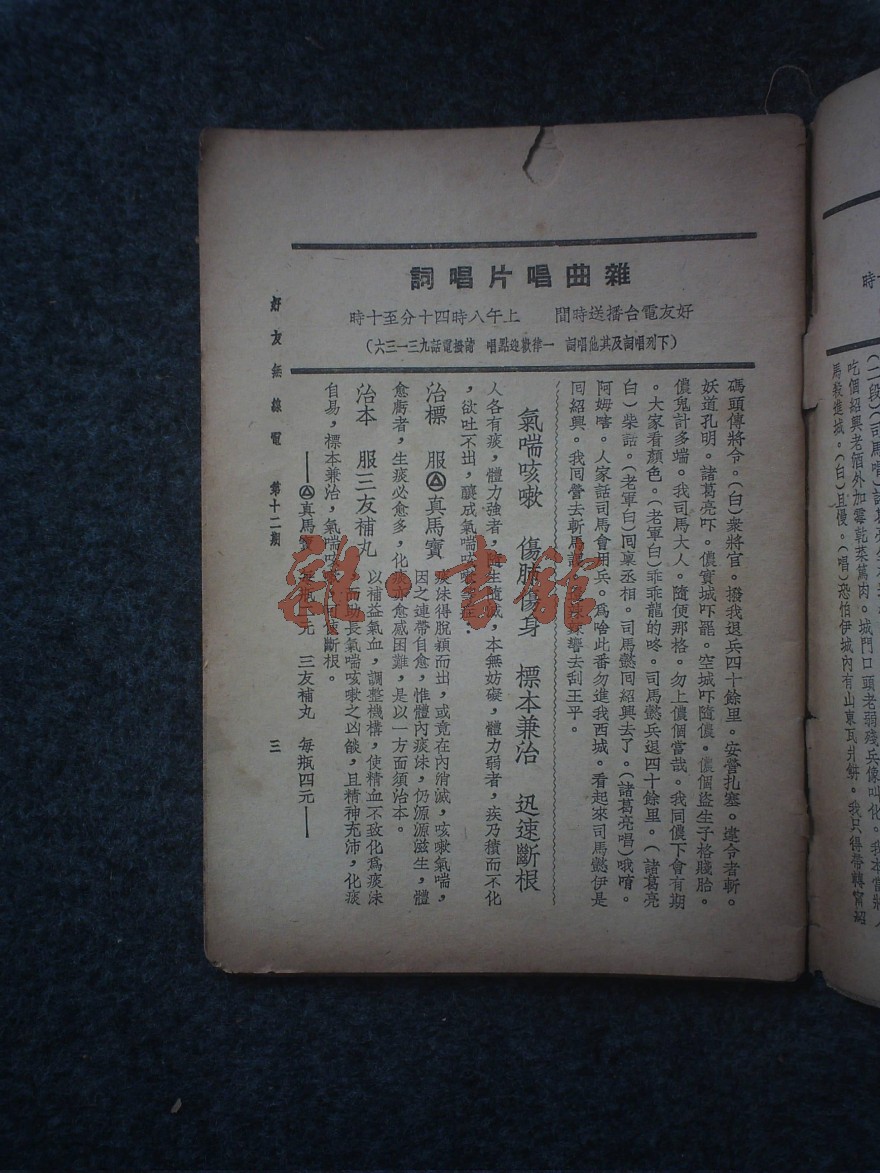 雜曲唱片唱詞
好友電台播送時間 上午八時四十分至十時
(下列唱詞及其他唱詞 一律歡迎點唱 請撥電話九三一三六)
碼頭傳將令。(白)衆將官。撥我退兵四十餘里。安營扎塞。違令者斬。
妖道孔明。諸葛亮吓。儂實城吓罷。空城吓隨儂。儂個盜生子格賤胎。
儂鬼計多端。我司馬大人。隨便那格。勿上儂個當哉。我同儂下會有期
。大家看顏色。(老軍白)乖乖龍的咚。司馬懿兵退四十餘里。(諸葛亮
白)柴話。(老軍白)回稟丞相。司馬懿回紹興去了。(諸葛亮唱)哦唷。
阿姆嗜。人家話司馬會用兵。爲啥此番勿進我西城。看起來司馬懿伊是
回紹興。我回營去斬馬謖。去刮王平。
氣喘咳嗽 傷肺傷身 標本兼治 迅速斷根
人各有痰,體力強者,隨生隨滅,本無妨礙,體力弱者,疾乃積而不化
,欲吐不出,釀成氣喘咳嗽
治標 服真馬寶 痰沬得脫穎而出,或竟在內消滅,咳嗽氣喘,
因之連帶自愈,惟體內痰沬,仍源源滋生,體
愈虧者,生痰必愈多,化痰亦愈感困難,是以一方面須治本。
治本 服三友補丸 以補益氣血,調整機構,使精血不致化爲痰沬
而助長氣喘咳嗽之凶燄,且精神充沛,化痰
自易,標本兼治,氣喘咳嗽,可使斷根。
真馬寶 每瓶二元 三友補丸 每瓶四元
好友無線電 第十二期 三
(二段)(司馬唱)
吃個紹興老酒外加霉乾菜篤肉。城門口頭老弱殘兵像叫化。我本當將人
馬殺進城。(白)且慢。(唱)恐怕伊城內有山東瓦爿餅。我只得帶轉甯紹
雜·書館